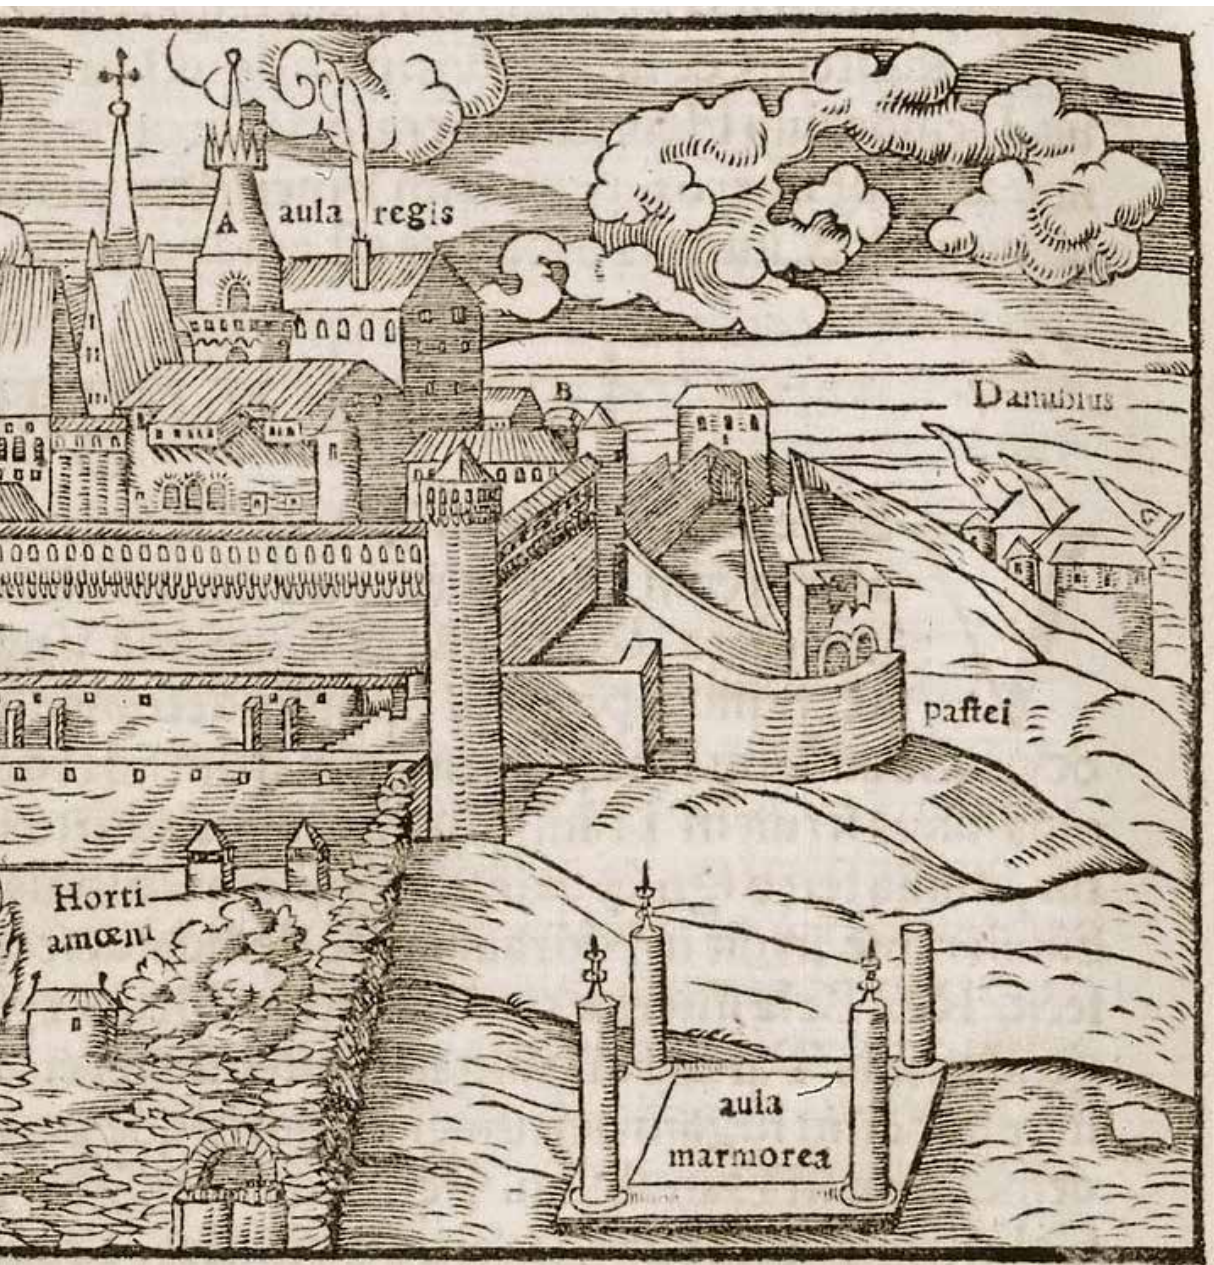 A
aula regis
B
Danubius
paſtei
Horti
amœni
aula
marmorea